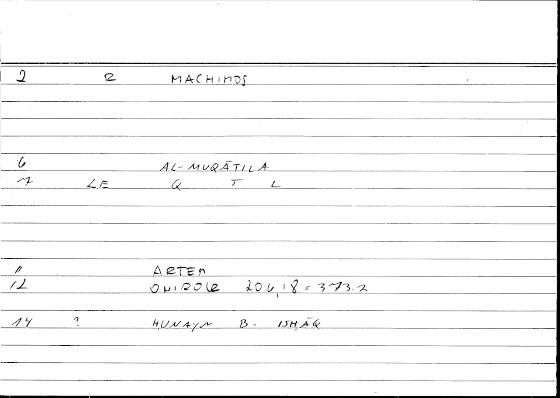 2 R MACHIMOS
6 AL-MUQĀTILA
7 LE Q T L
11 ARTEM
12 ONIROCR 206,18 = 373.2
14 ? ḤUNAYN B. ISḤĀQ